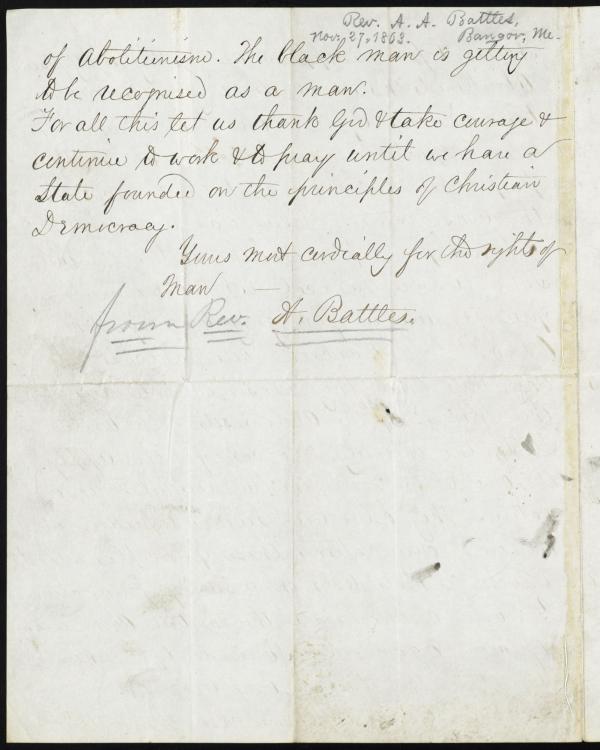 Rev. A. A. Battles,
Nov. 27, 1863. Bangor, Me.
of Abolitionism. The black man is getting
to be recognised as a man.
For all this let us thank God & take courage &
continue to work & to pray until we have a
State founded on the principles of Christian
Democracy.
Yours most cordially for the rights of
Man —
from Rev. A. Battles.